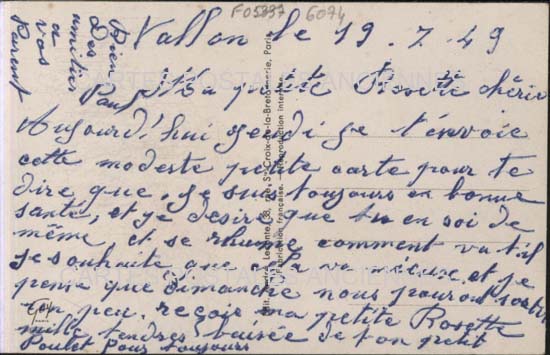 F05337 6074
Vallon le 19.7.49
Ma petite Rosette chérie
Aujourd'hui jeudi je t'envoie
cette modeste petite carte pour te
dire que je suis toujours en bonne
santé, et je désire que tu en soi de
même et se rhume comment va t'il
je souhaite que sa va mieux et je
pense que dimanche nous pourons sortir
un peu. reçoie ma petite Rosette
mille tendres baisée de ton petit
Poulet pour toujours
Paul
Bien
Des
amitiés
a
vos
Parent
CARTES POSTALES ANCIENNES
CARTES POSTALES ANCIENNES
Ste-Croix-de-la-Bretonnerie, Paris
Fabrication française. Reproduction interdite.